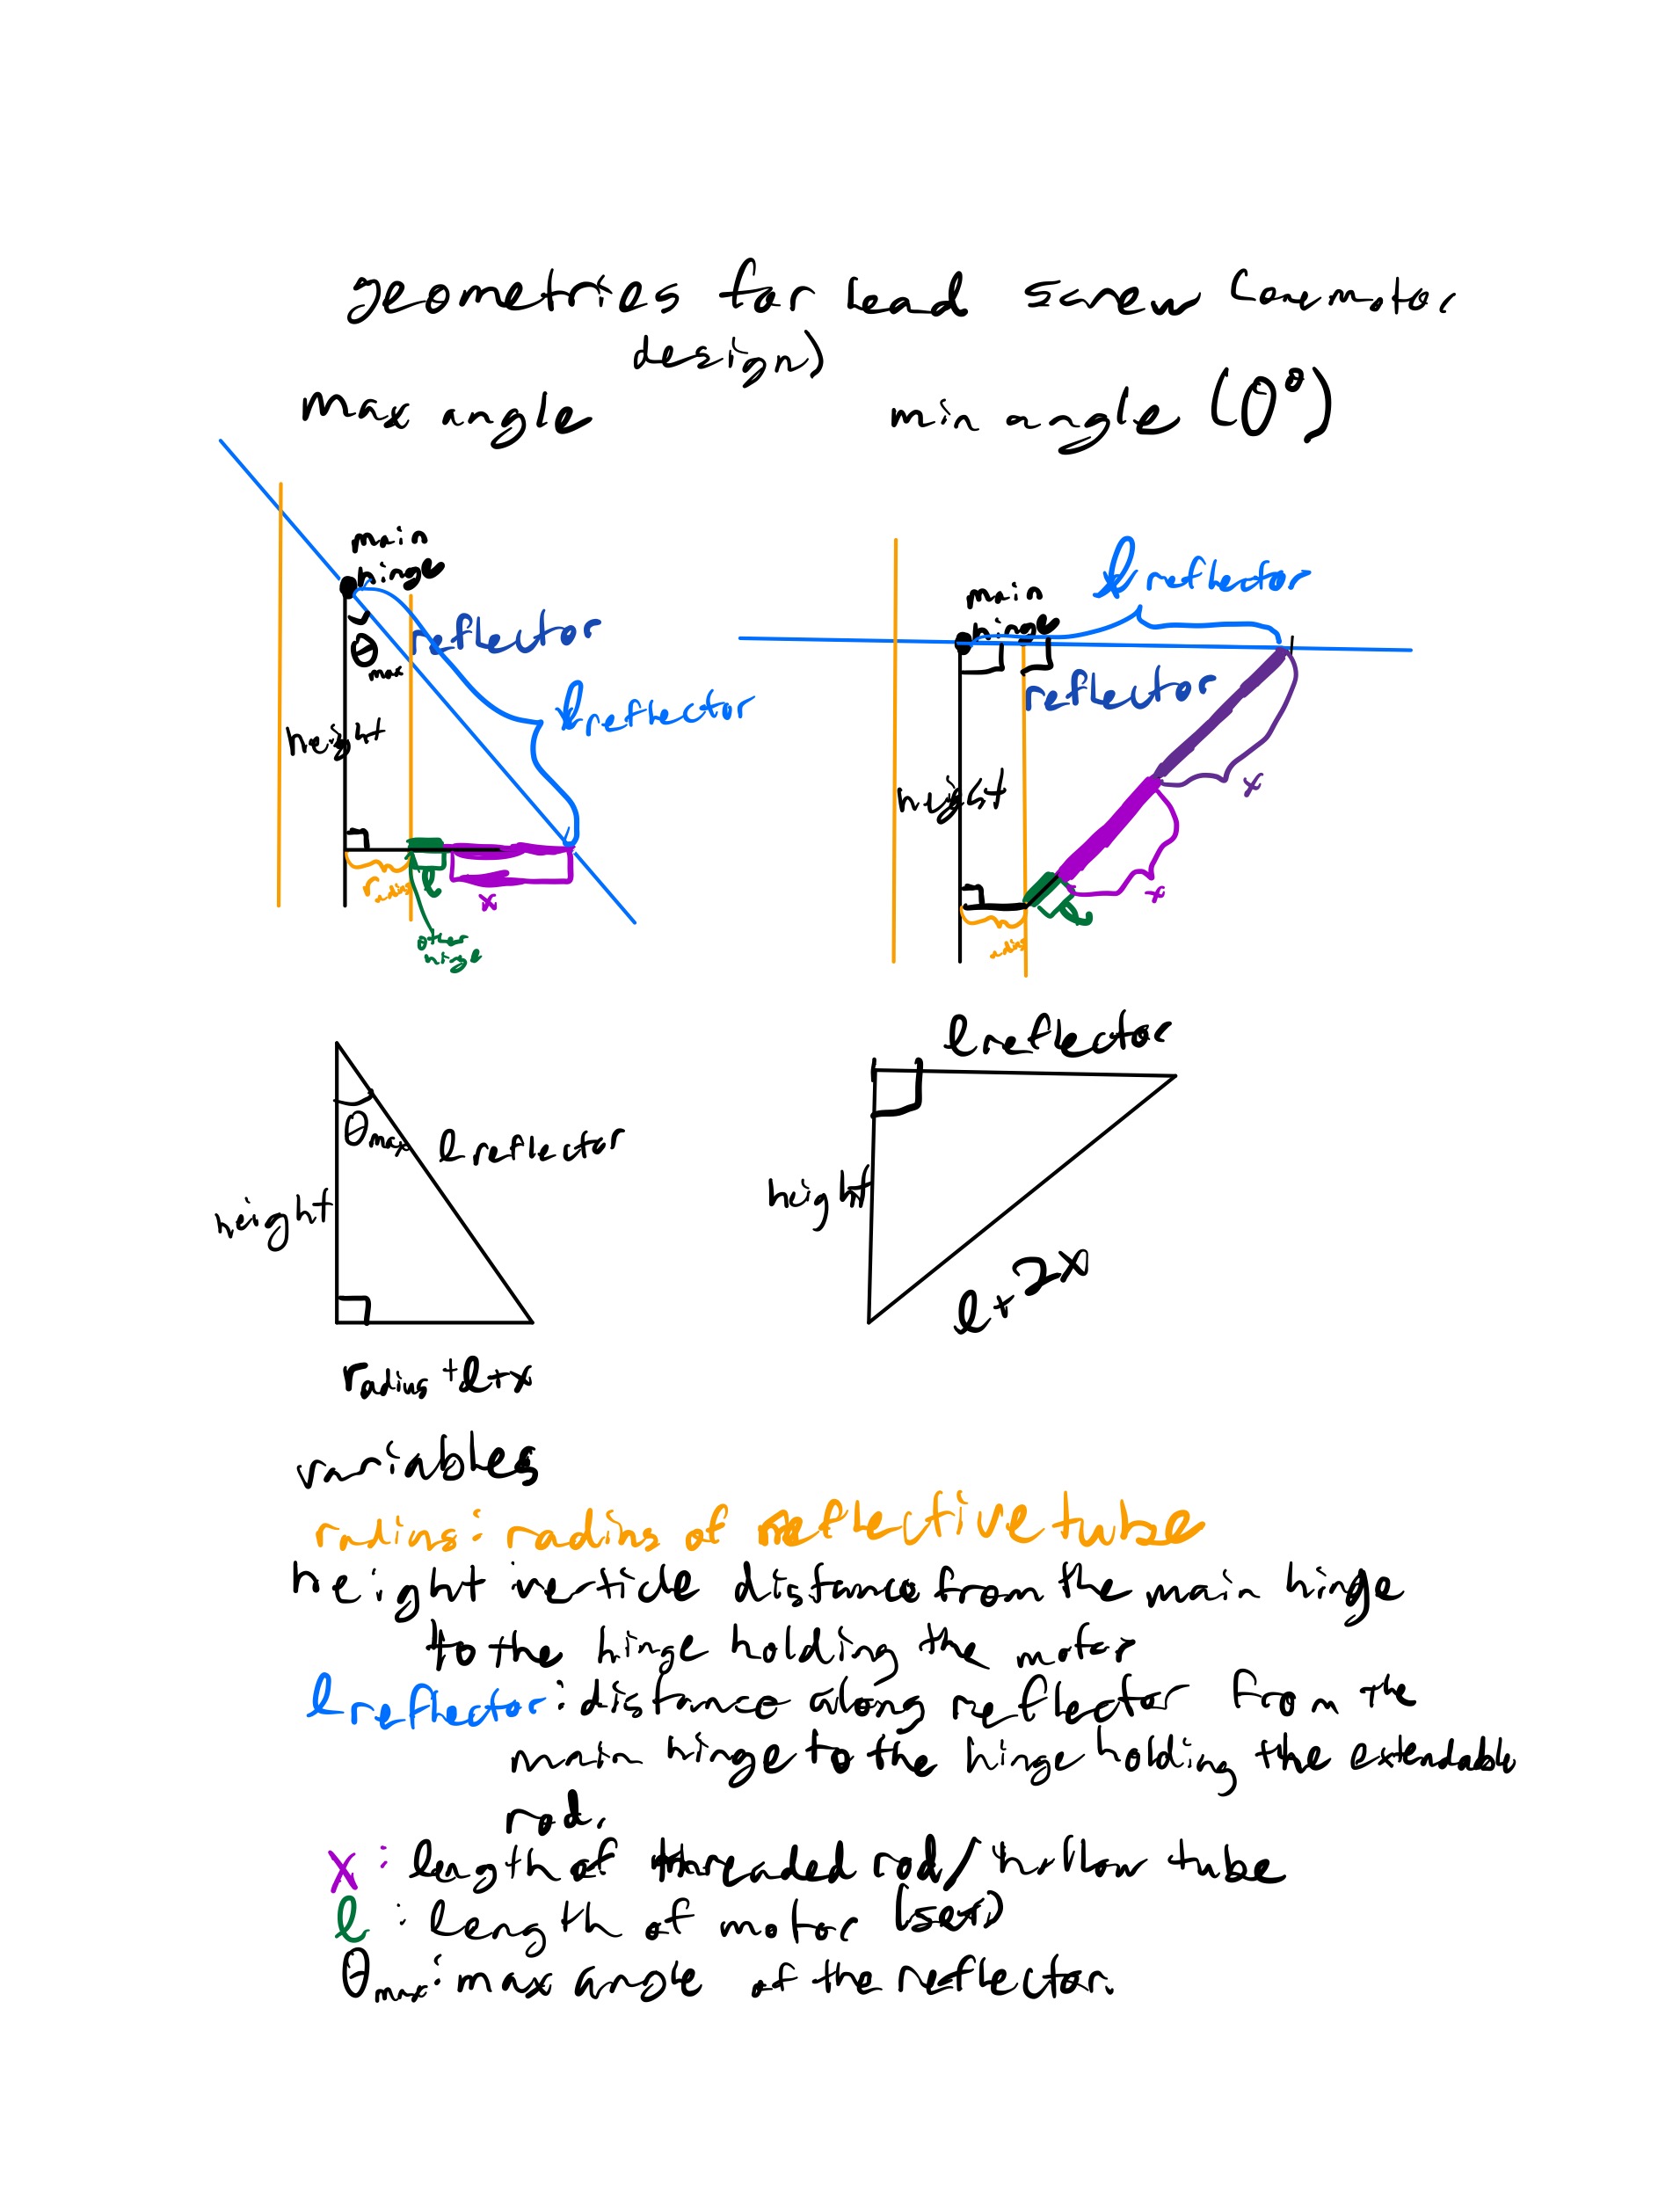 geometries for lead screw (one motor
design)
max angle
min angle (0°)
main
hinge
θmax
reflector
l reflector
height
radius
l
x
other
hinge
main
hinge
l reflector
reflector
height
x
x
l
radius
θmax
l reflector
height
radius + l + x
l reflector
height
l + 2x
variables
radius: radius of reflective tube
height verticle distance from the main hinge
to the hinge holding the motor
l reflector: distance along reflector from the
main hinge to the hinge holding the extendable
rod.
x: length of threaded rod/hollow tube
l: length of motor (set)
θmax: max angle of the reflector.